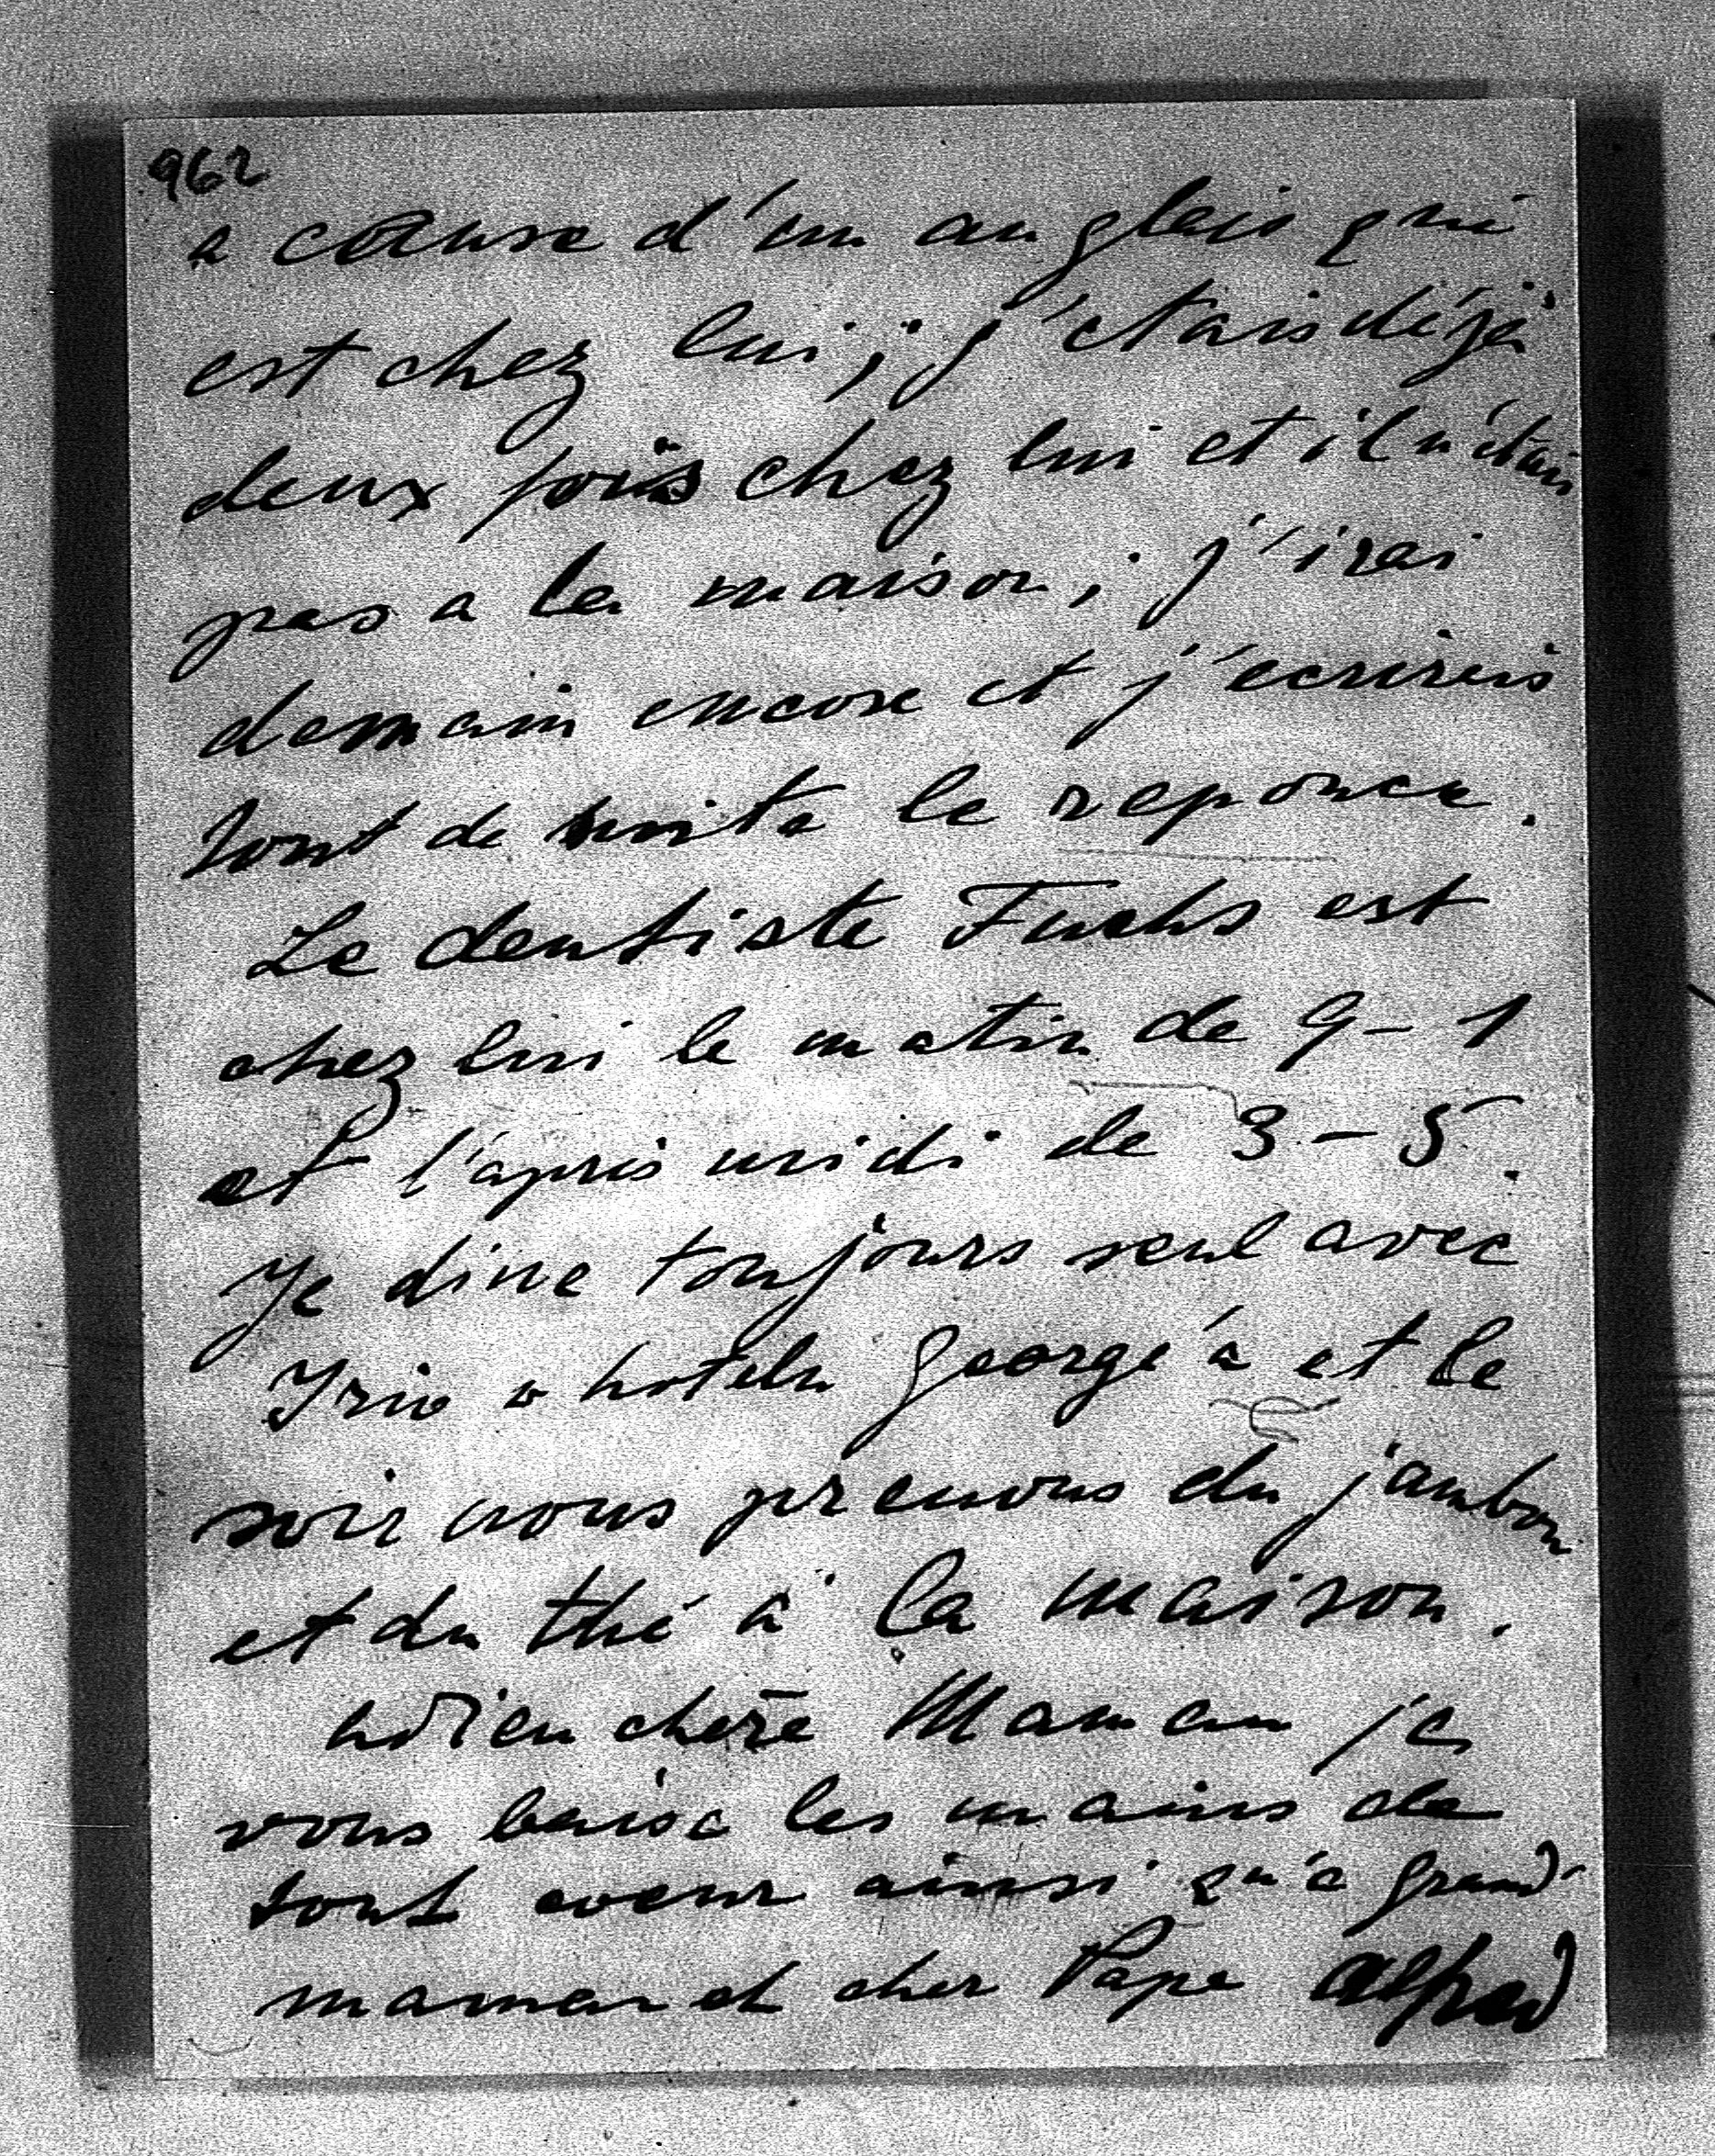 962
a cause d'un anglais qui
est chez lui; j'étais déjà
deux fois chez lui et il n'étais
pas a la maison; j'irai
demain encore et j'ecrireis
tout de suite le reponce.
Le dentiste Fuchs est
chez lui le matin de 9 – 1
et l'après midi de 3 – 5.
Je dine toujours seul avec
a hotelu George'a et le
soir nous prenons du jambon
et du thé à la maison.
adieu chère Maman je
vous baise les mains de
tout coeur ainsi qu'a grand
maman et cher Papa Alfred